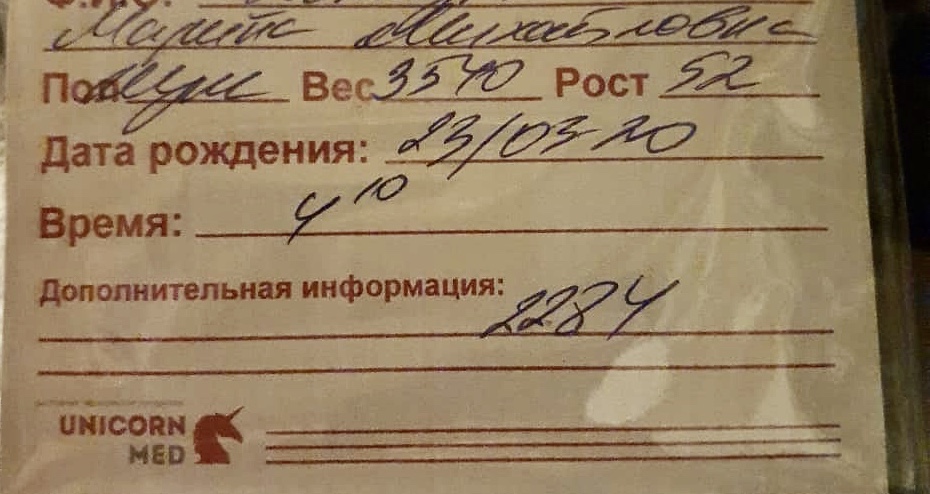 Ф.И.О.
Мария Михайловна
Пол муж Вес 3540 Рост 52
Дата рождения: 23/03-20
Время: 4 10
Дополнительная информация:
2284
UNICORN
MED